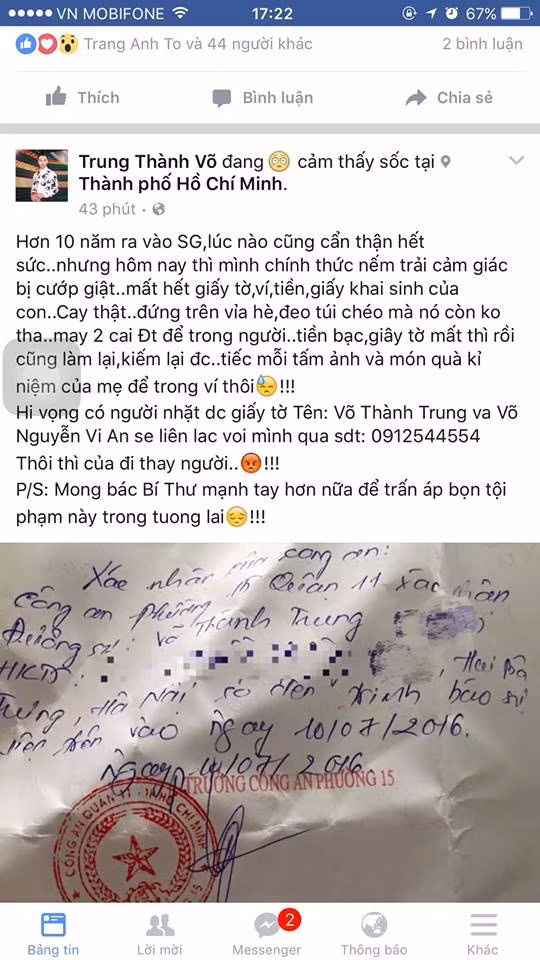 VN MOBIFONE 17:22 67%
Trang Anh To và 44 người khác 2 bình luận
Thích Bình luận Chia sẻ
Trung Thành Võ đang 😳 cảm thấy sốc tại
Thành phố Hồ Chí Minh.
43 phút ·
Hơn 10 năm ra vào SG,lúc nào cũng cẩn thận hết
sức..nhưng hôm nay thì mình chính thức nếm trải cảm giác
bị cướp giật..mất hết giấy tờ,ví,tiền,giấy khai sinh của
con..Cay thật..đứng trên vỉa hè,đeo túi chéo mà nó còn ko
tha..may 2 cai Đt để trong người..tiền bạc,giây tờ mất thì rồi
cũng làm lại,kiếm lại đc..tiếc mỗi tấm ảnh và món quà kỉ
niệm của mẹ để trong ví thôi😓!!!
Hi vọng có người nhặt dc giấy tờ Tên: Võ Thành Trung va Võ
Nguyễn Vi An se liên lac voi mình qua sdt: 0912544554
Thôi thì của đi thay người..😡!!!
P/S: Mong bác Bí Thư mạnh tay hơn nữa để trấn áp bọn tội
phạm này trong tuong lai😔!!!
Xác nhận của công an:
Công an phường 15 Quận 11 xác nhận
Đương sự: Võ Thành Trung
HKTT: , Hai Bà
Trưng, Hà Nội có đến trình báo sự
việc trên vào ngày 10/07/2016.
Ngày 10/07/2016
TRƯỞNG CÔNG AN PHƯỜNG 15
CÔNG AN QUẬN 11 - TP.HỒ CHÍ MINH
2
Bảng tin Lời mời Messenger Thông báo Khác